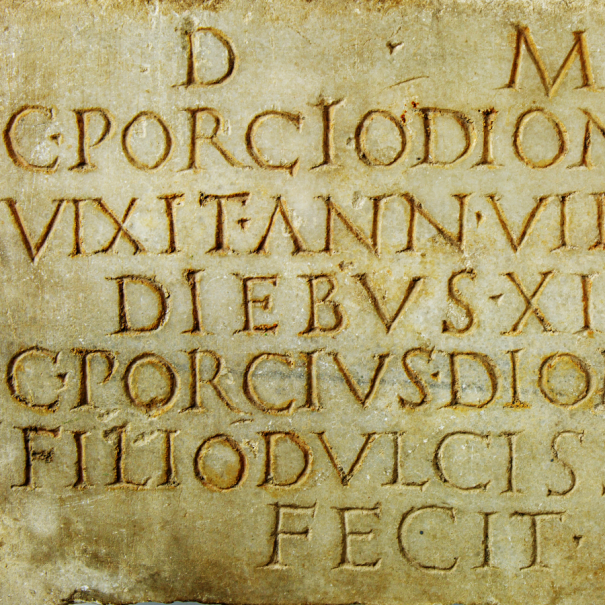 D M
C·PORCIO DION
VIXIT·ANN·VII
DIEBVS·XI
C·PORCIVS·DIO
FILIO DVLCISS
FECIT·